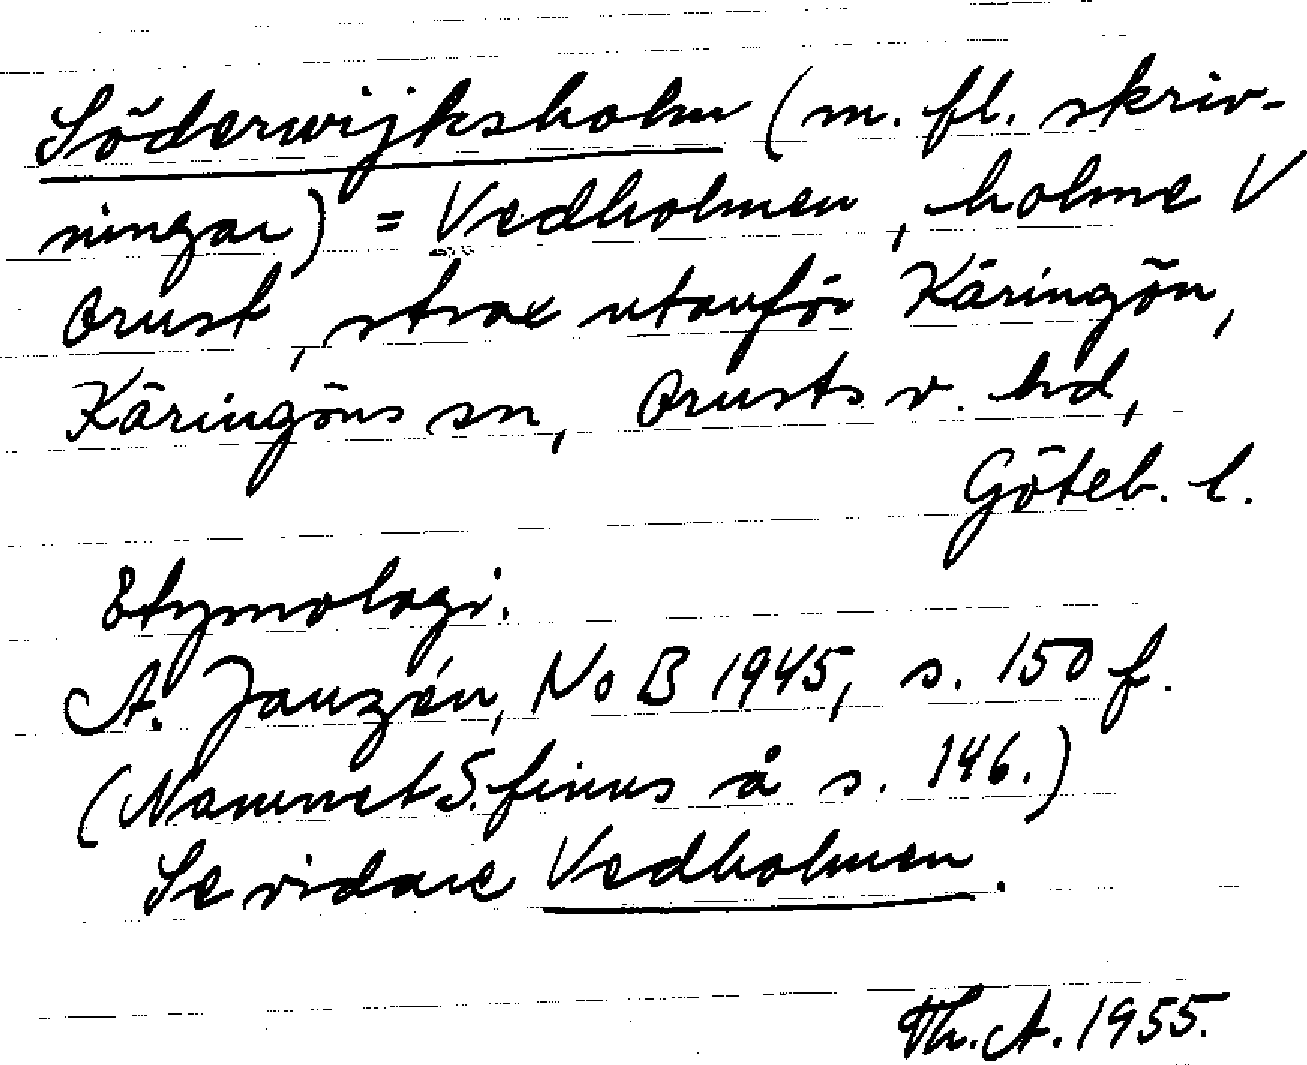 Söderwijksholm (m. fl. skriv-
ningar) = Vedholmen, holme V
Orust, strax utanför Käringön,
Käringöns sn, Orusts v. hd,
Göteb. l.
Etymologi.
A. Janzén, NoB 1945, s. 150 f.
(Namnet S. finns å s. 146.)
Se vidare Vedholmen.
Th. A. 1955.